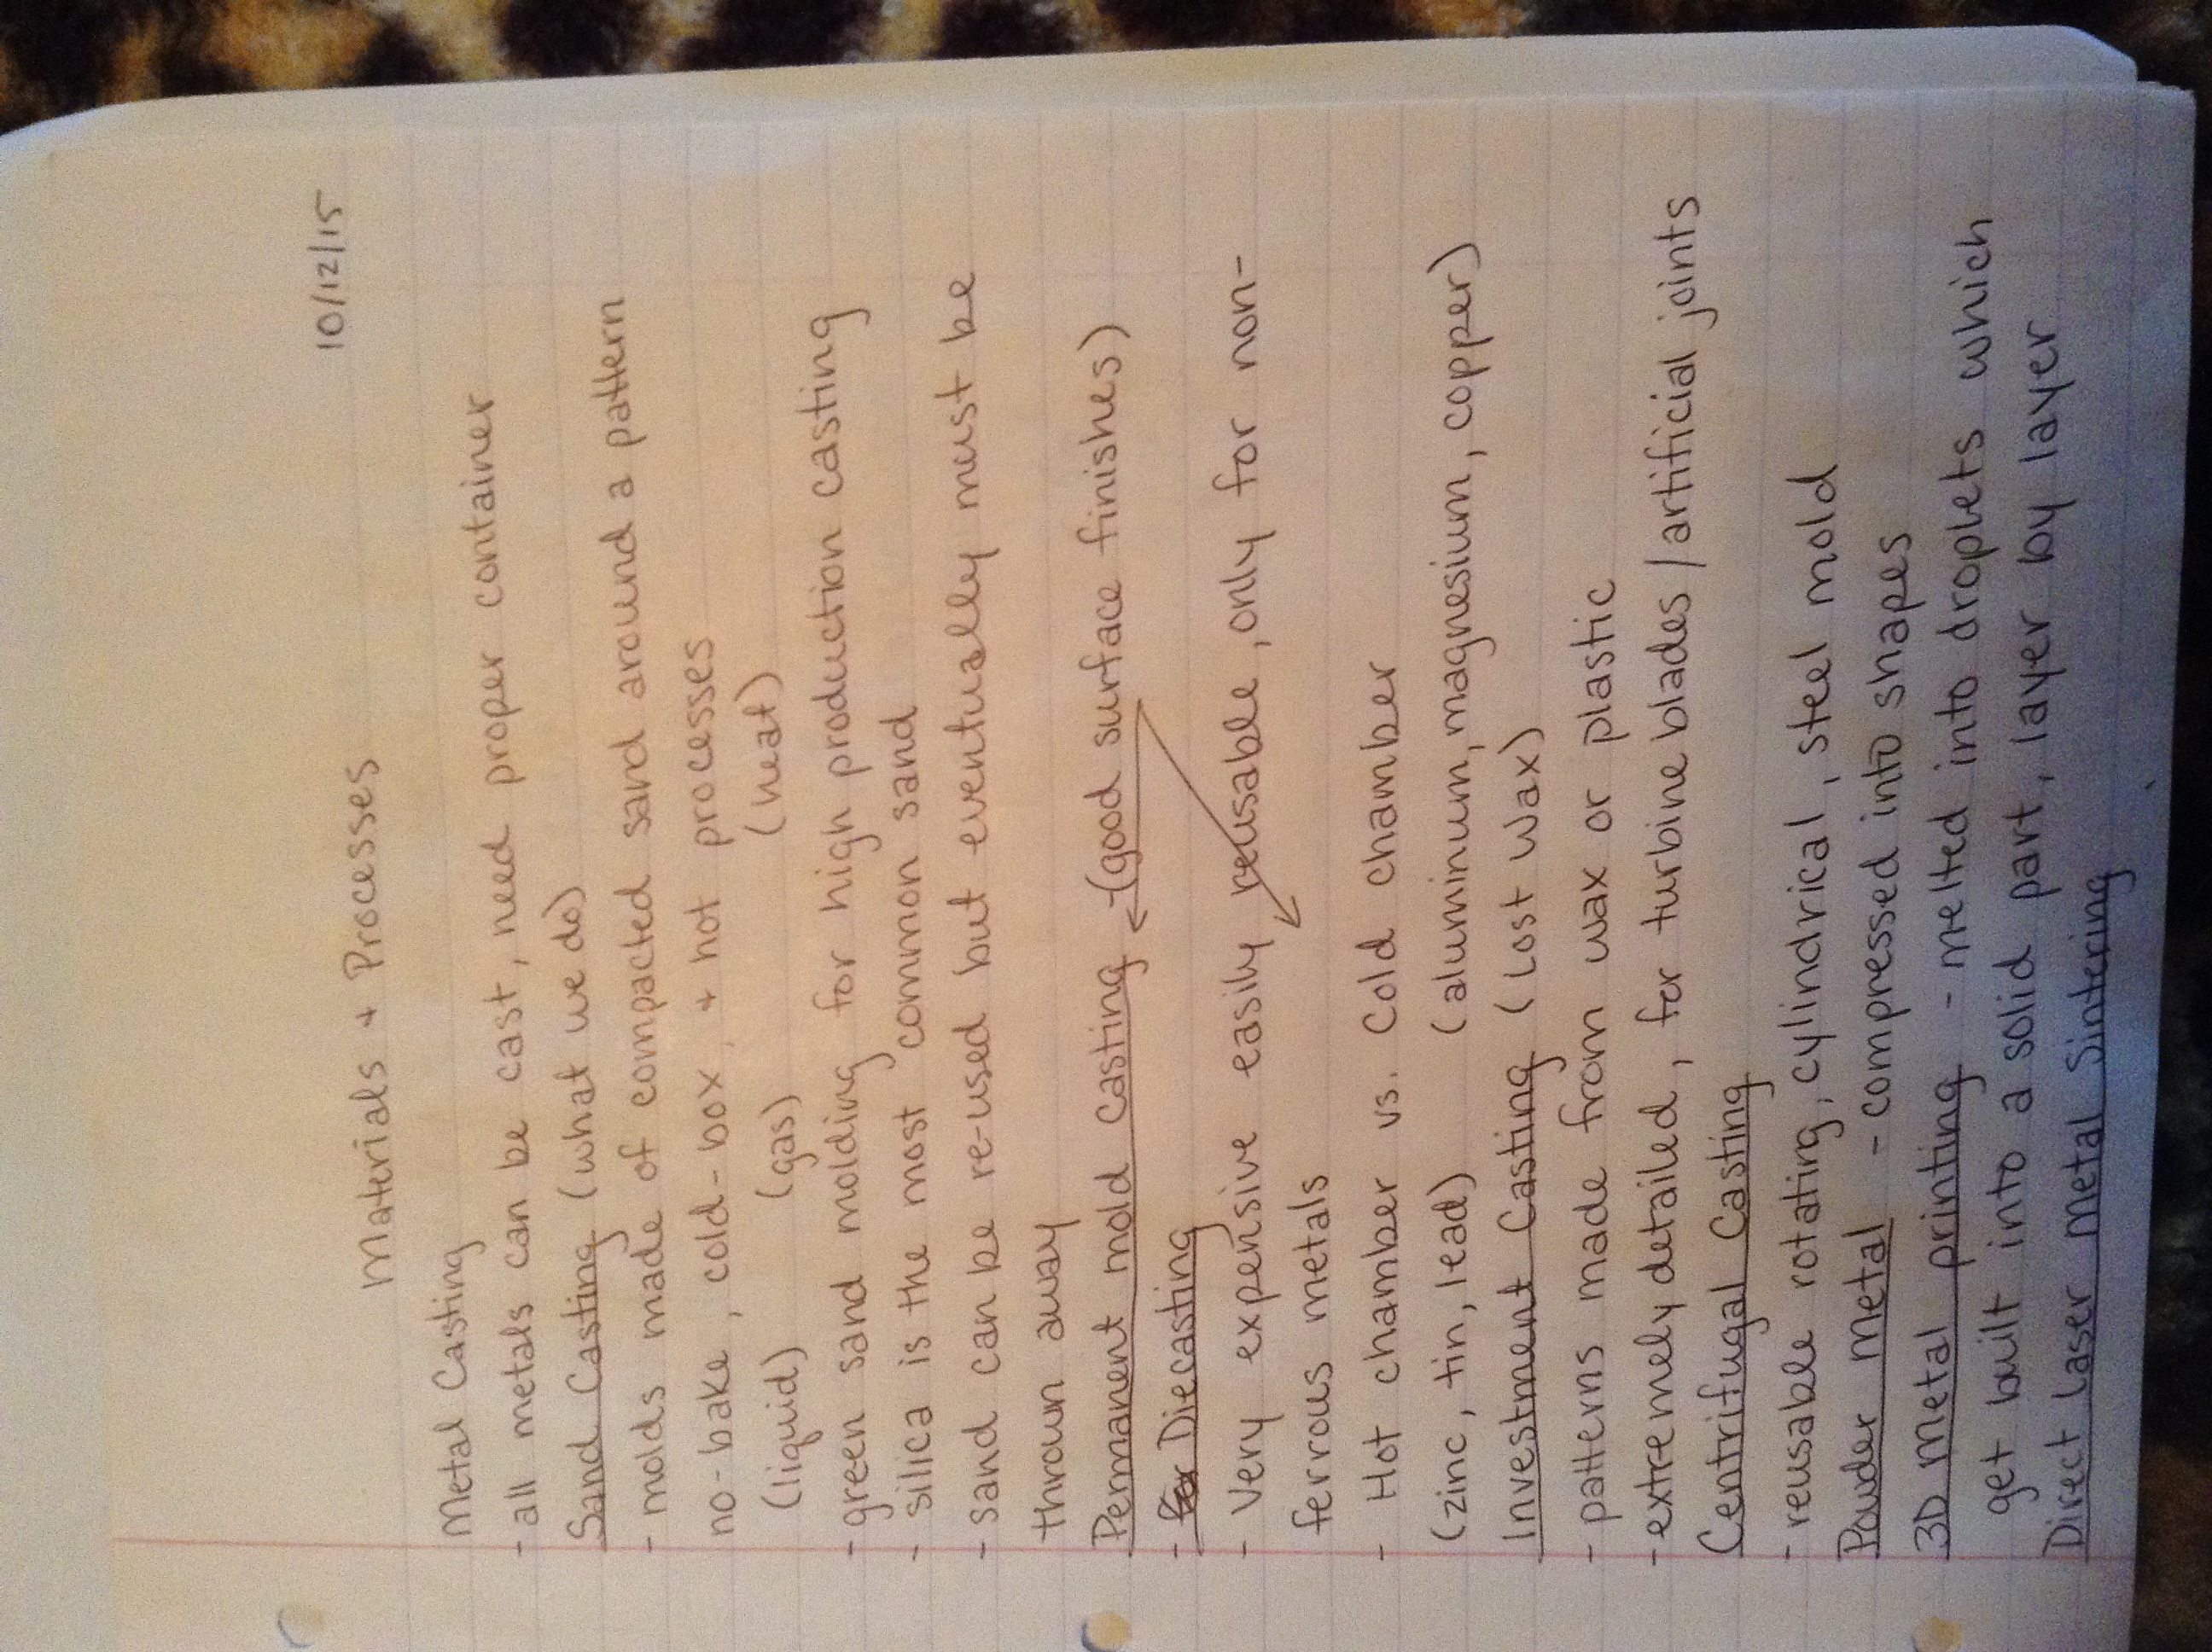 10/12/15
Materials + Processes
Metal Casting
- all metals can be cast, need proper container
Sand Casting (what we do)
- molds made of compacted sand around a pattern
no-bake, cold-box, + hot processes
(liquid) (gas) (heat)
- green sand molding for high production casting
- silica is the most common sand
- sand can be re-used but eventually must be
thrown away
Permanent mold casting - (good surface finishes)
- for Diecasting
- very expensive easily reusable, only for non-
ferrous metals
- Hot chamber vs. Cold chamber
(zinc, tin, lead) (aluminum, magnesium, copper)
Investment Casting (Lost Wax)
- patterns made from wax or plastic
- extremely detailed, for turbine blades/artificial joints
Centrifugal Casting
- reusable rotating, cylindrical, steel mold
Powder Metal - compressed into shapes
3D metal printing - melted into droplets which
get built into a solid part, layer by layer
Direct Laser Metal Sintering